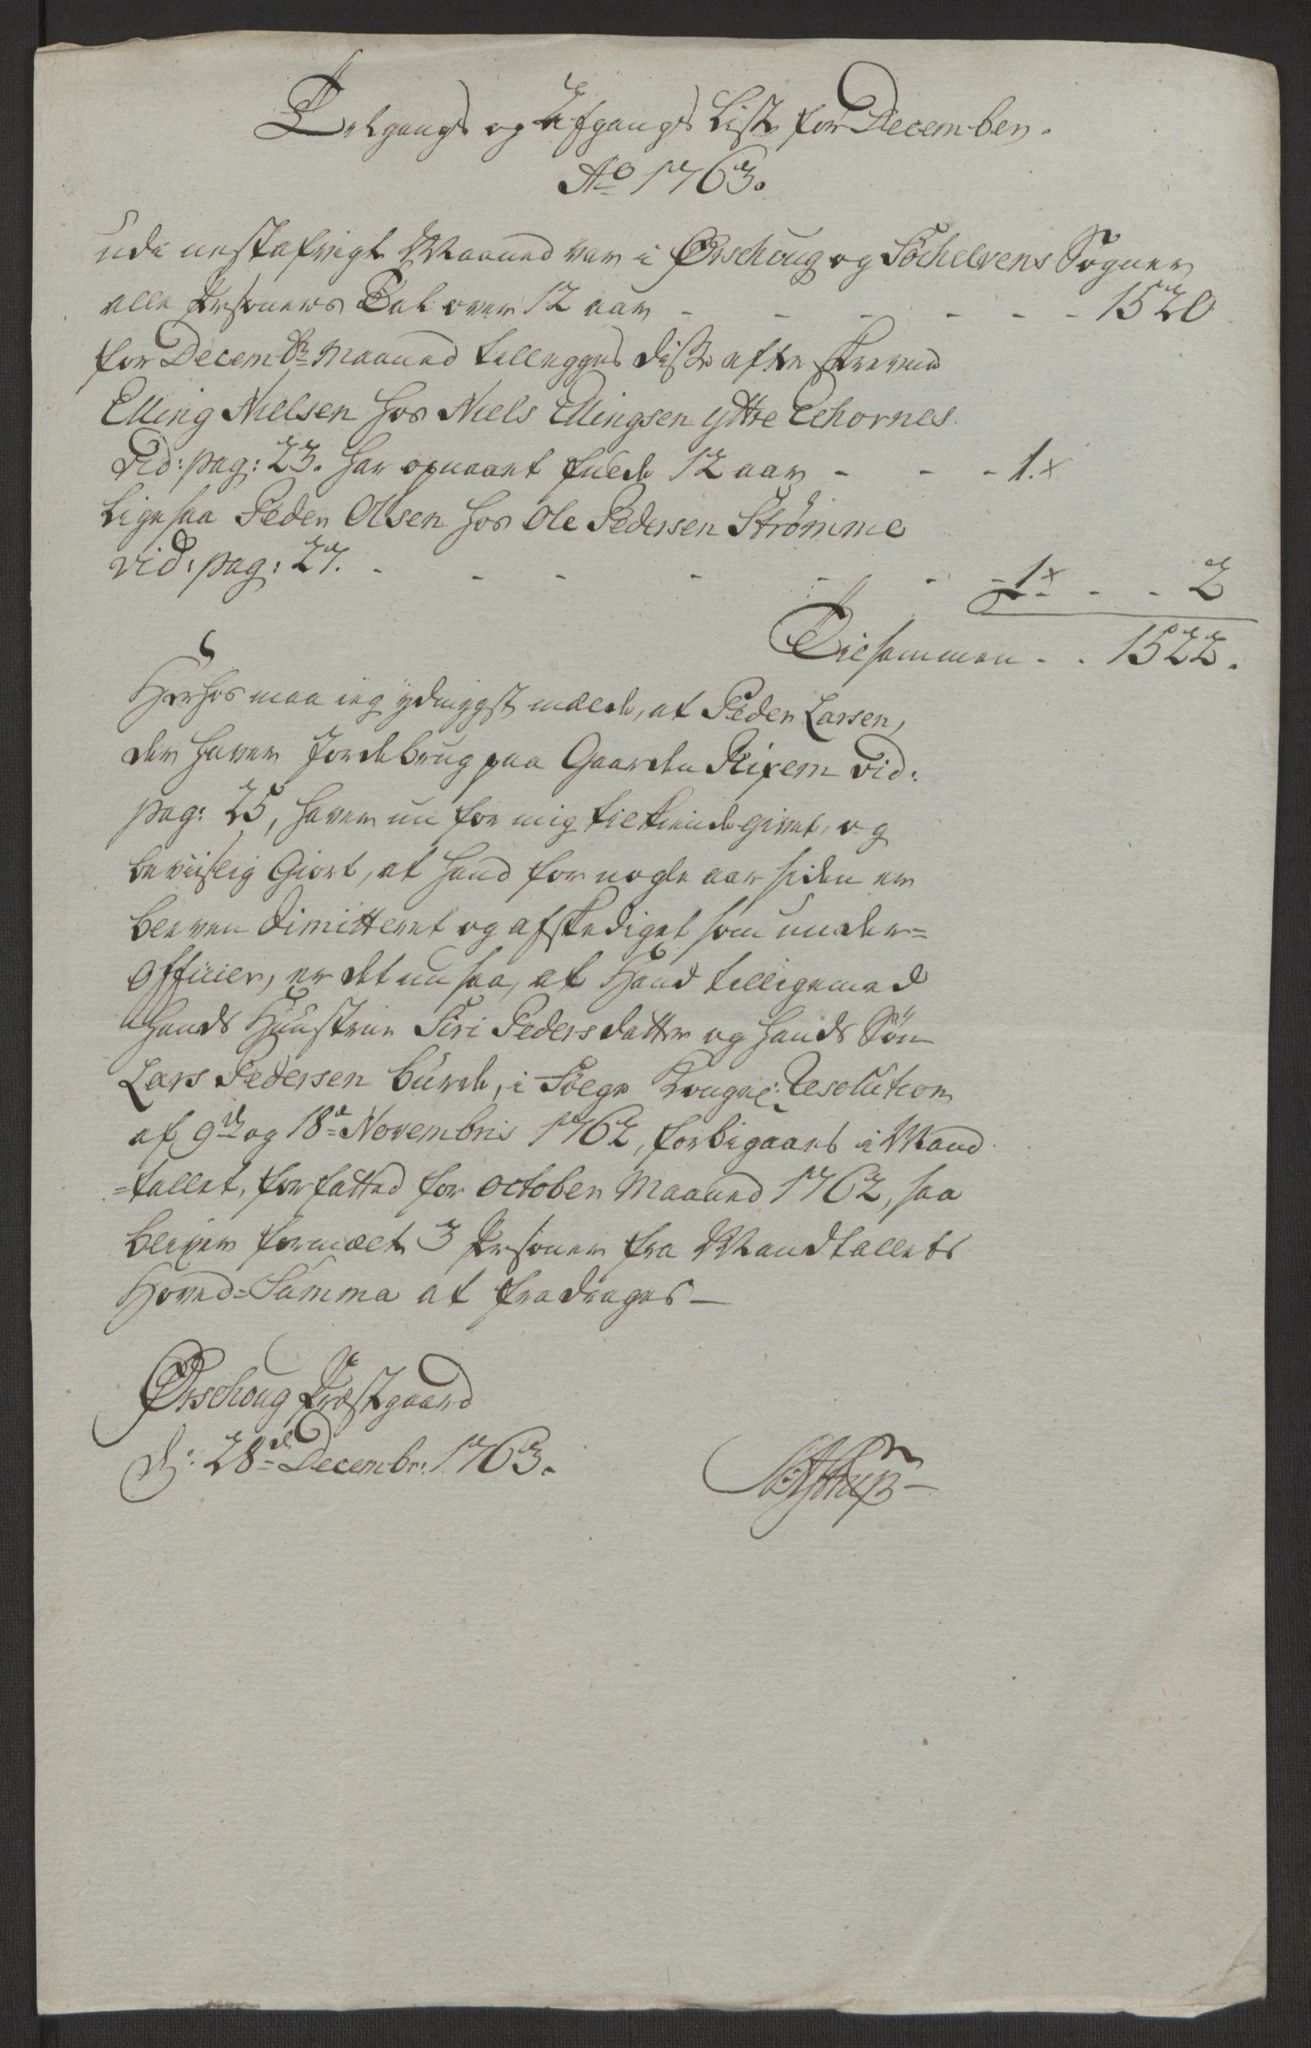 Tilgangs og Afgangs Liste for December.
Ao 1763.
udi nestafvigt Maaned var i Ørschoug og Söchelvens Sogner
alle Persohners Tal over 12 aar - - - - - - 1520
for Decembr Maaned tillegges disse efterskrevne
Elling Nielsen hos Niels Ellingsen yttre Echornes
vid: pag: 23. har opnaaet fulde 12 aar - - - 1.x
ligesaa Peder Olsen hos Ole Pedersen Strømme
vid: pag: 27. - - - - - - 1x - - 2
Tilsammen - - 1522.
Herhos maa ieg ydmygst mælde, at Peder Larsen,
der haver Jordebrug paa Gaarden vid:
pag: 25, haver nu for mig tilkiendegivet, og
beviislig Giort, at hand for nogle aar siden er
bleven dimitteret og afskediget som under=
Officier, er det nu saa, at Hand tilligemed
hands Hustrue Siri Pedersdatter og hands Søn
Lars Pedersen burde, i Følge Kongel: Resolution
af 9de og 18de Novembris 1762, forbigaaes i Mand
=tallet, forfatted for October Maaned 1762, saa
bliver formælte 3 Persohner fra Mandtallets
Hoved=Summa at fradrages —
Ørschoug Præstgaard
d: 28de Decembr: 1763.